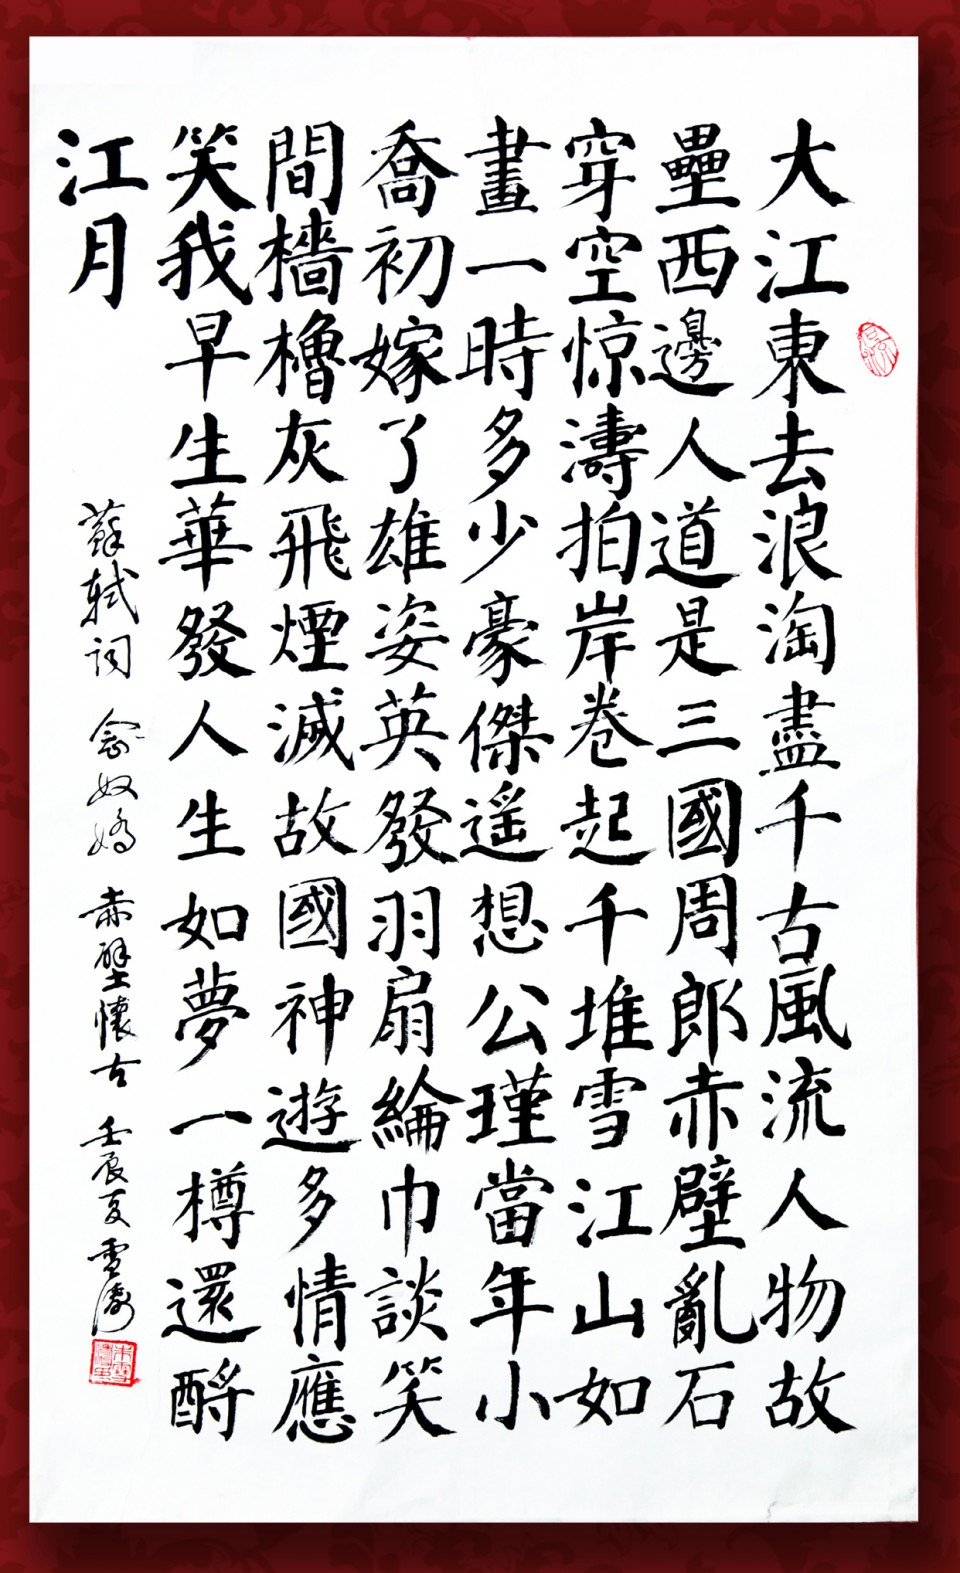 大江東去浪淘盡千古風流人物故
壘西邊人道是三國周郎赤壁亂石
穿空惊濤拍岸卷起千堆雪江山如
畫一時多少豪傑遥想公瑾當年小
喬初嫁了雄姿英發羽扇綸巾談笑
間檣櫓灰飛煙滅故國神遊多情應
笑我早生華發人生如夢一樽還酹
江月
蘇軾詞 念奴嬌 赤壁懷古 壬辰夏 雪濤